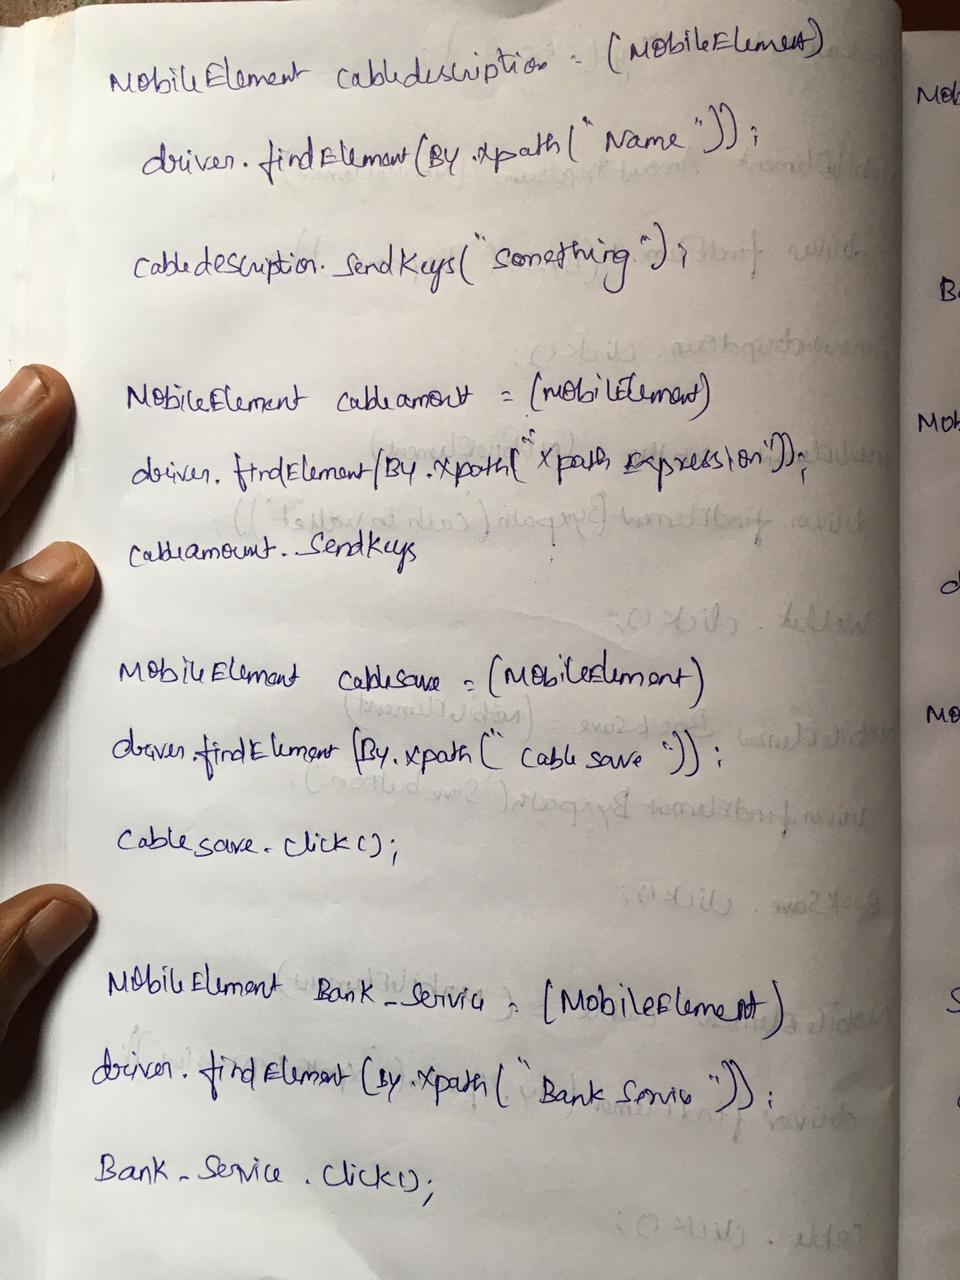 MobileElement cabledescription = (MobileElement)
driver.findElement(By.xpath("Name"));
cabledescription.sendKeys("something");
MobileElement cableamout = (mobilElement)
driver.findElement(By.xpath("xpath expression"));
cableamount.Sendkeys
MobileElement cablesave = (MobileElement)
driver.findElement(By.xpath("cable save"));
Cablesave.click();
MobileElement Bank_Service = (MobileElement)
driver.findElement(By.xpath("Bank Service"));
Bank_Service.click();
Mob
Ba
Mob
d
Mo
S